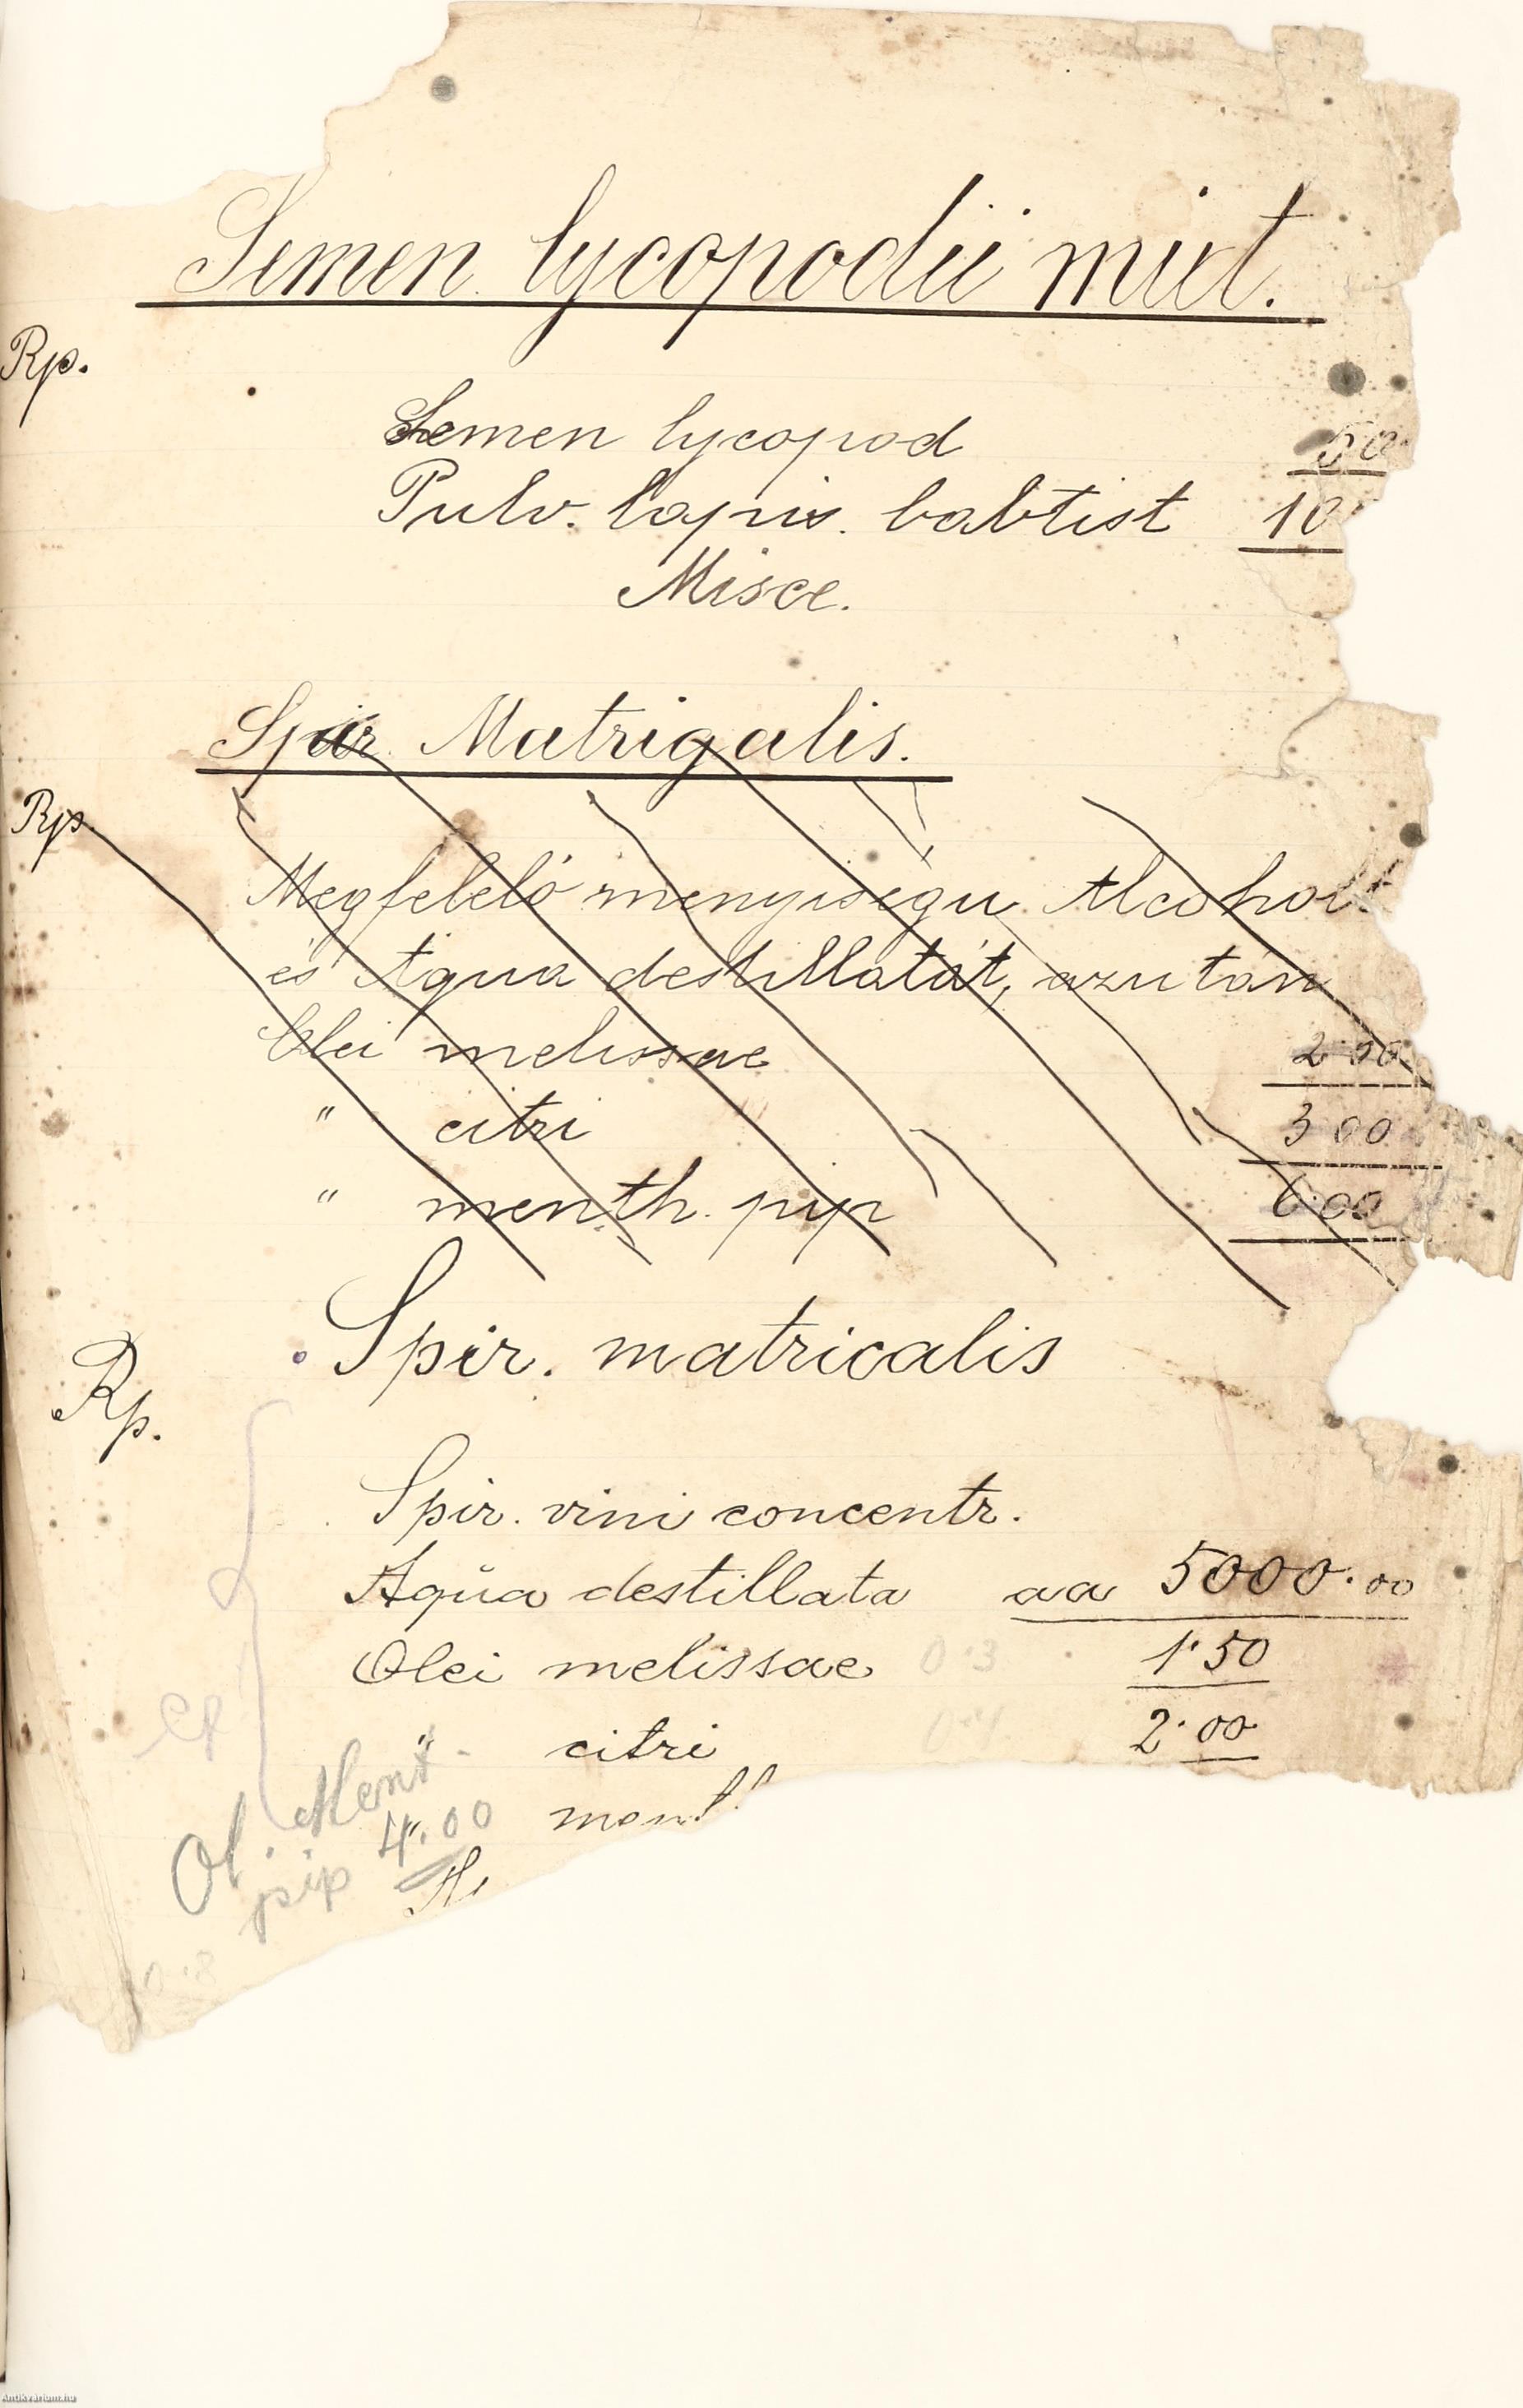 Semen lycopodii mixt.
Rp.
Semen lycopod 50
Pulv. lapis. babtist 10
Misce.
Spir Matrigalis.
Rp.
Megfelelő menyiségu Alcoholt
és Aqua destillatát, azután
Olei melissae 2.00
" citri 3 00
" menth. pip 6.00
Spir. matricalis
Rp.
Spir. vini concentr.
Aqua destillata aa 5000.00
Olei melissae 0.3 1.50
" citri 0.4 2.00
" ment
Ol. Ment
pip 4.00
0.8
Antikvarium.hu